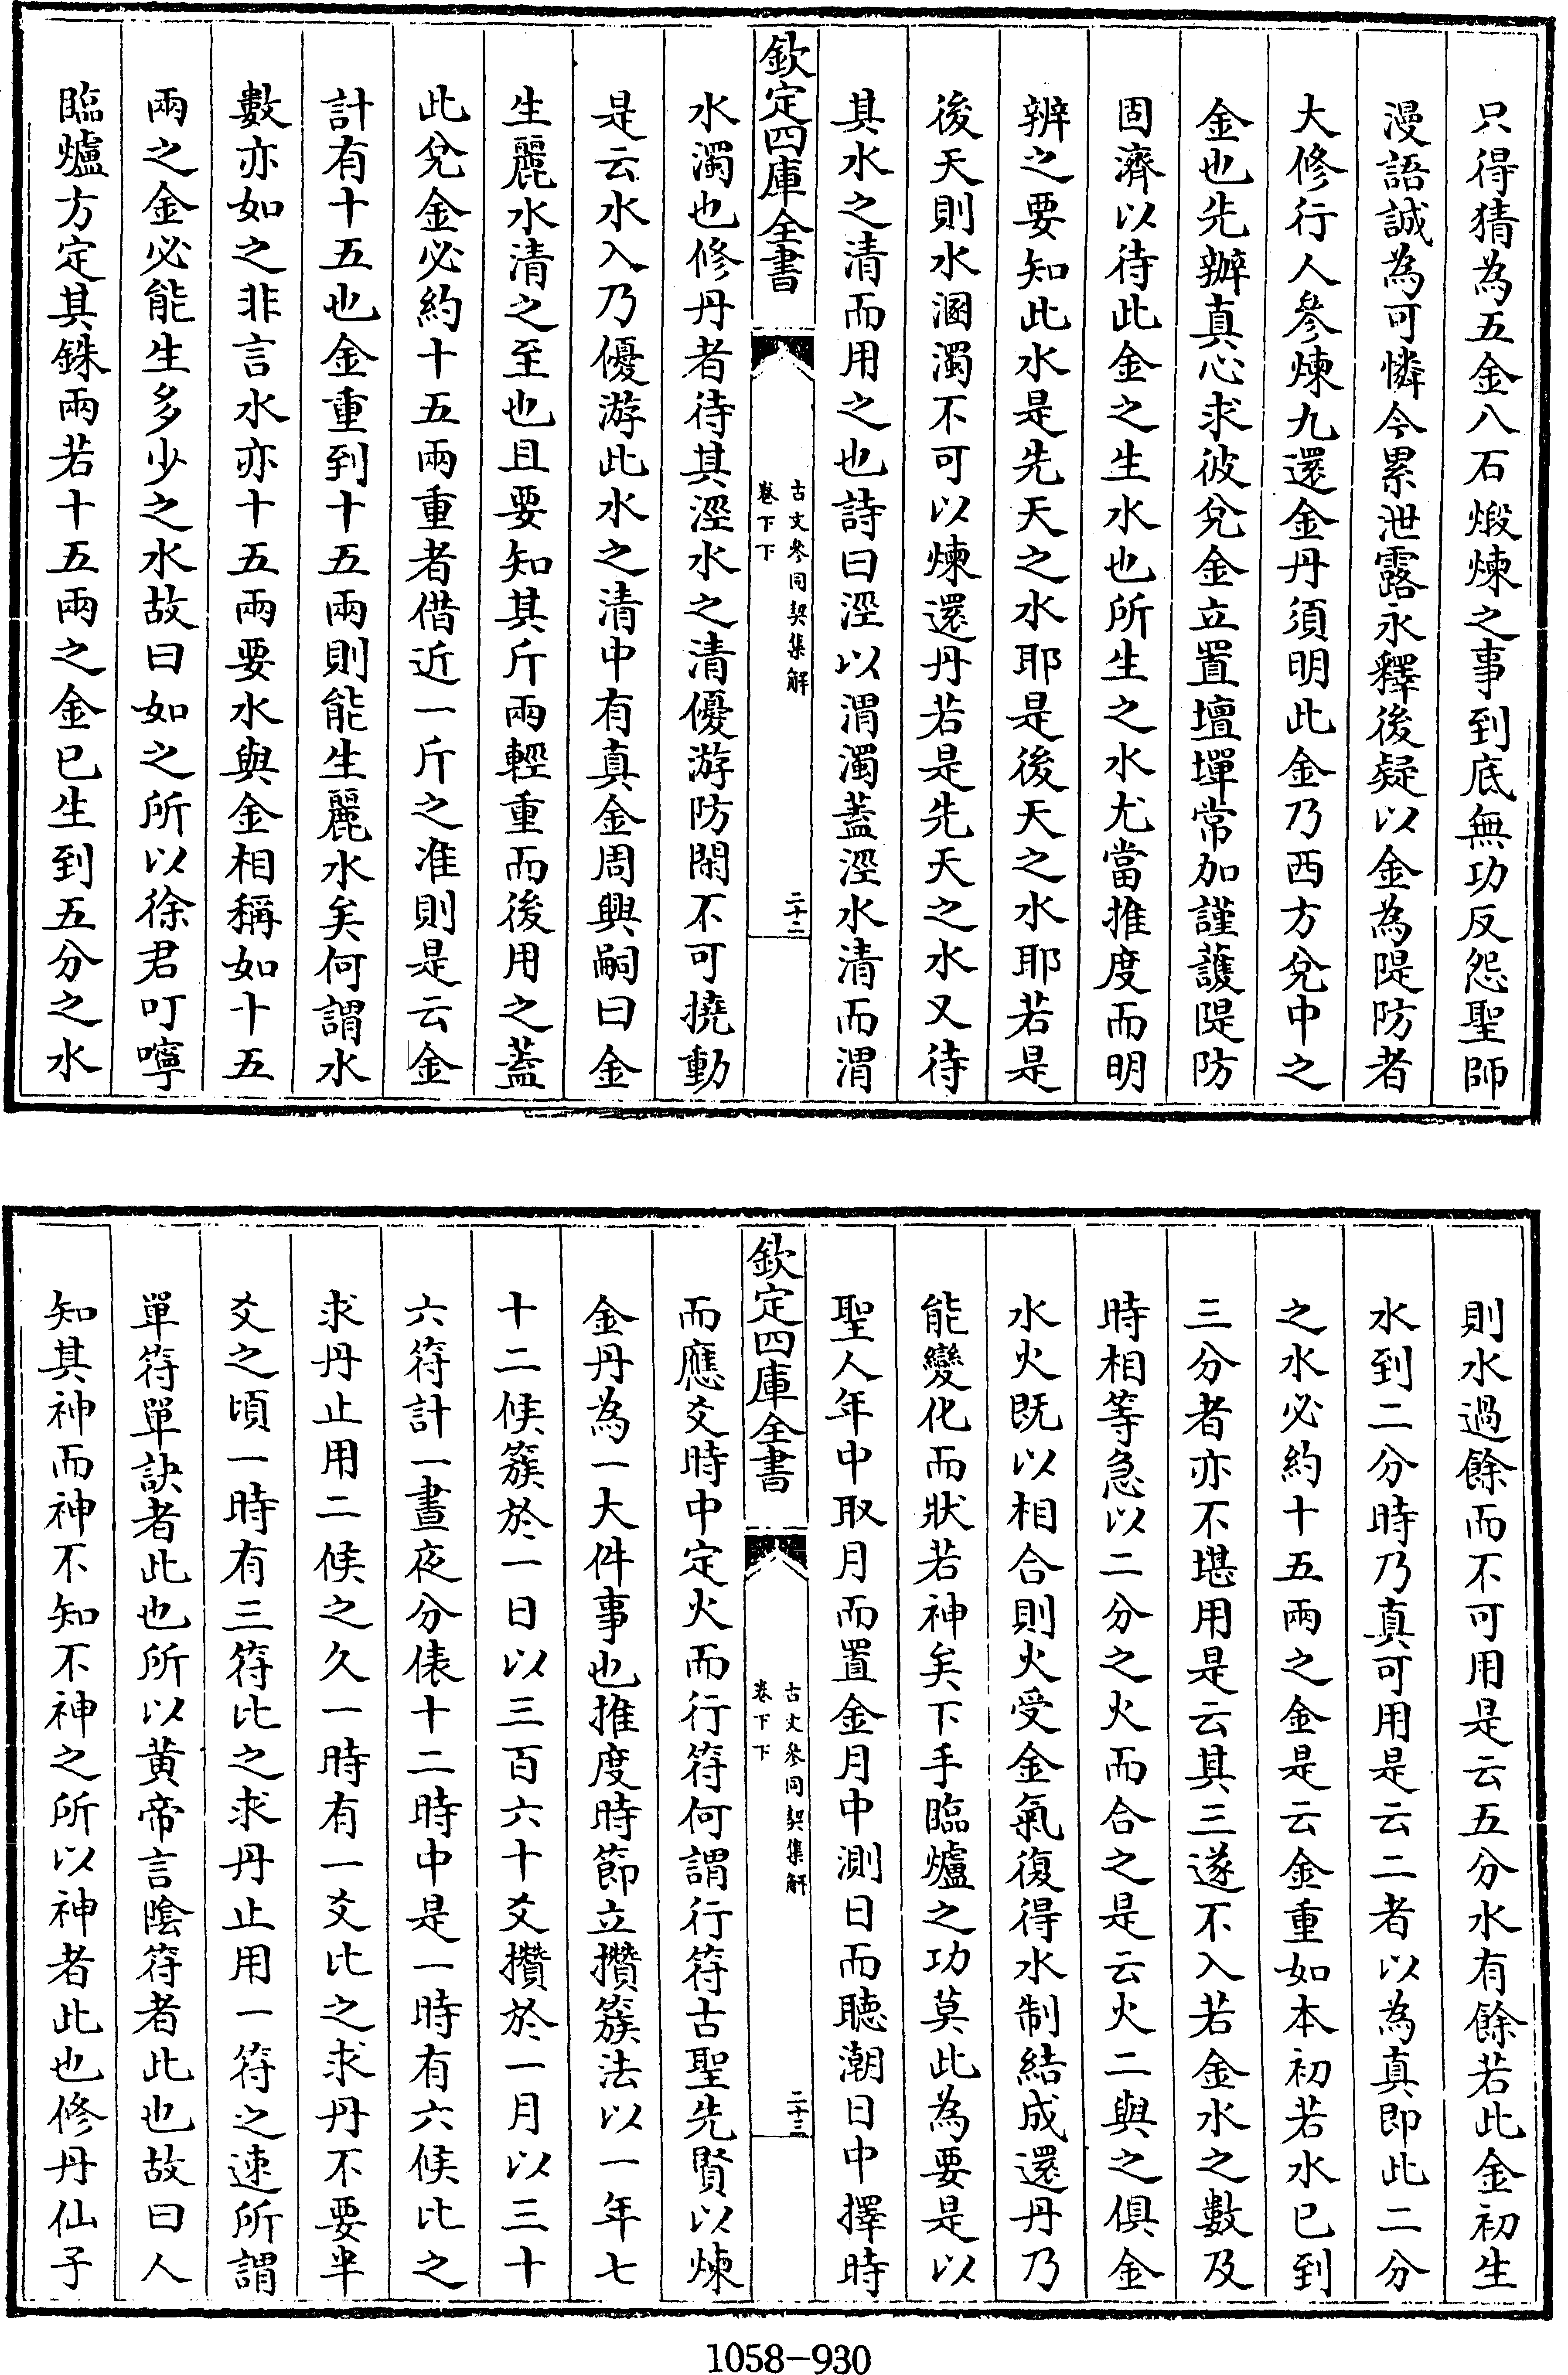 只得猜為五金八石煅煉之事到底無功反怨聖師
漫語誠為可憐今累泄露永釋後疑以金為隄防者
大修行人參煉九還金丹須明此金乃西方兌中之
金也先辦真心求彼兌金立置壇墠常加謹護隄防
固濟以待此金之生水也所生之水尤當推度而明
辨之要知此水是先天之水耶是後天之水耶若是
後天則水溷濁不可以煉還丹若是先天之水又待
其水之清而用之也詩曰涇以渭濁蓋涇水清而渭
欽定四庫全書
古文參同契集解
卷下下
二十二
水濁也修丹者待其涇水之清優游防閑不可撓動
是云水入乃優游此水之清中有真金周興嗣曰金
生麗水清之至也且要知其斤兩輕重而後用之蓋
此兌金必約十五兩重者借近一斤之准則是云金
計有十五也金重到十五兩則能生麗水矣何謂水
數亦如之非言水亦十五兩要水與金相稱如十五
兩之金必能生多少之水故曰如之所以徐君叮嚀
臨爐方定其銖兩若十五兩之金已生到五分之水
則水過餘而不可用是云五分水有餘若此金初生
水到二分時乃真可用是云二者以為真即此二分
之水必約十五兩之金是云金重如本初若水已到
三分者亦不堪用是云其三遂不入若金水之數及
時相等急以二分之火而合之是云火二與之俱金
水火既以相合則火受金氣復得水制結成還丹乃
能變化而狀若神矣下手臨爐之功莫此為要是以
聖人年中取月而置金月中測日而聽潮日中擇時
欽定四庫全書
古文參同契集解
卷下下
二十三
而應爻時中定火而行符何謂行符古聖先賢以煉
金丹為一大件事也推度時節立攢簇法以一年七
十二候簇於一日以三百六十爻攢於一月以三十
六符計一晝夜分俵十二時中是一時有六候比之
求丹止用二候之久一時有一爻比之求丹不要半
爻之頃一時有三符比之求丹止用一符之速所謂
單符單訣者此也所以黄帝言陰符者此也故曰人
知其神而神不知不神之所以神者此也修丹仙子
1058-930